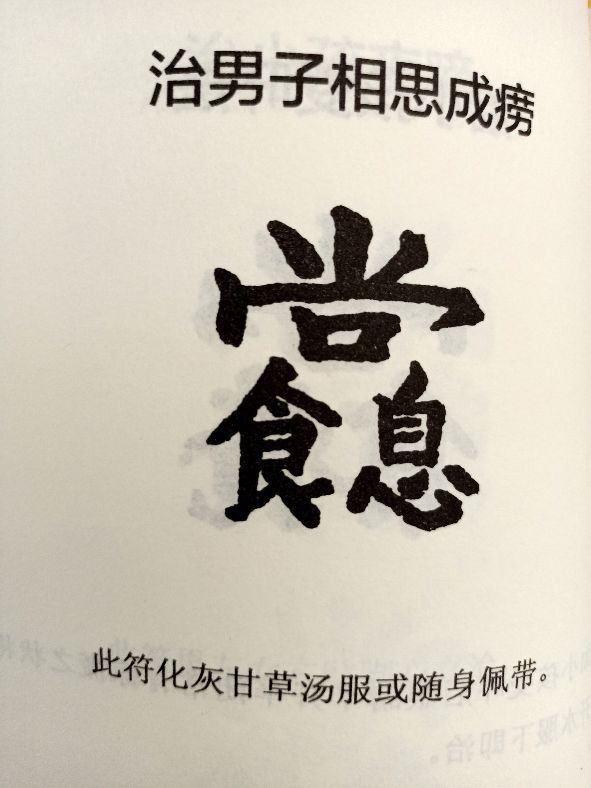 治男子相思成痨
尚
食息
此符化灰甘草汤服或随身佩带。